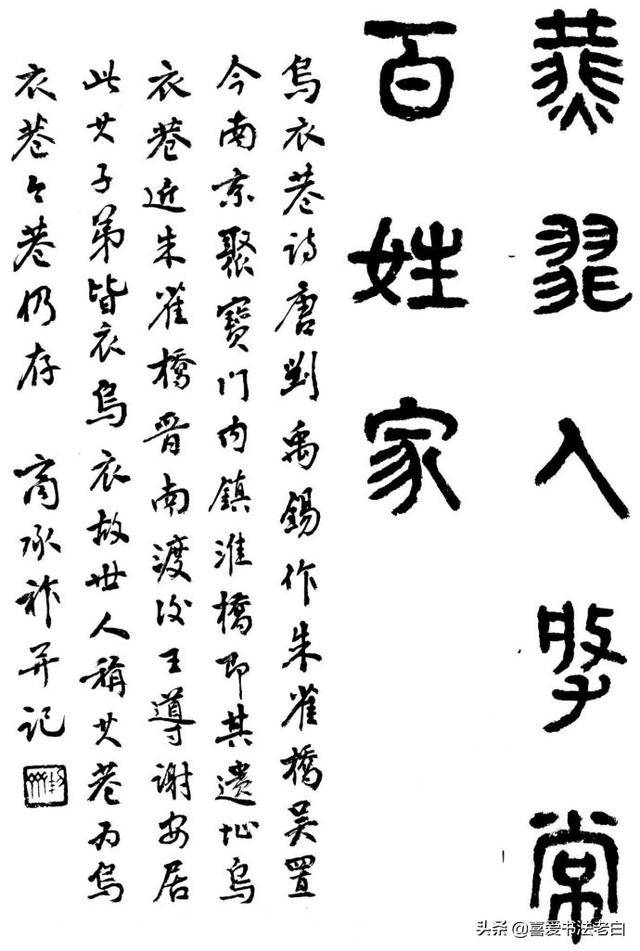 燕飛入尋常
百姓家
烏衣巷詩唐劉禹錫作朱雀橋吳置
今南京聚寶門內鎮淮橋即其遺址烏
衣巷近朱雀橋晉南渡後王導謝安居
此其子弟皆衣烏衣故世人稱其巷為烏
衣巷今巷仍存 商承祚并記
头条 @喜爱书法老白